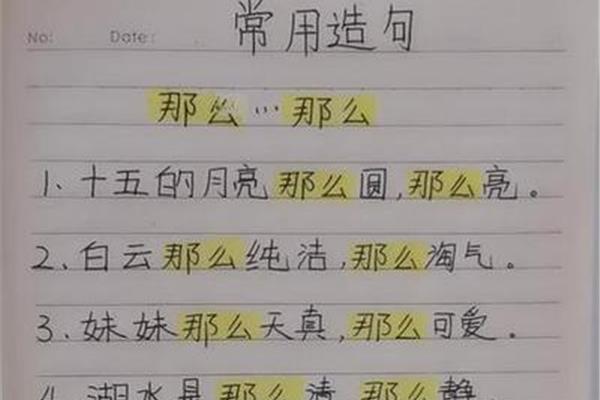 No: Date: 常用造句
那么…那么
1、十五的月亮那么圆,那么亮。
2、白云那么纯洁,那么淘气。
3、妹妹那么天真,那么可爱。
4、湖水是那么清,那么静。